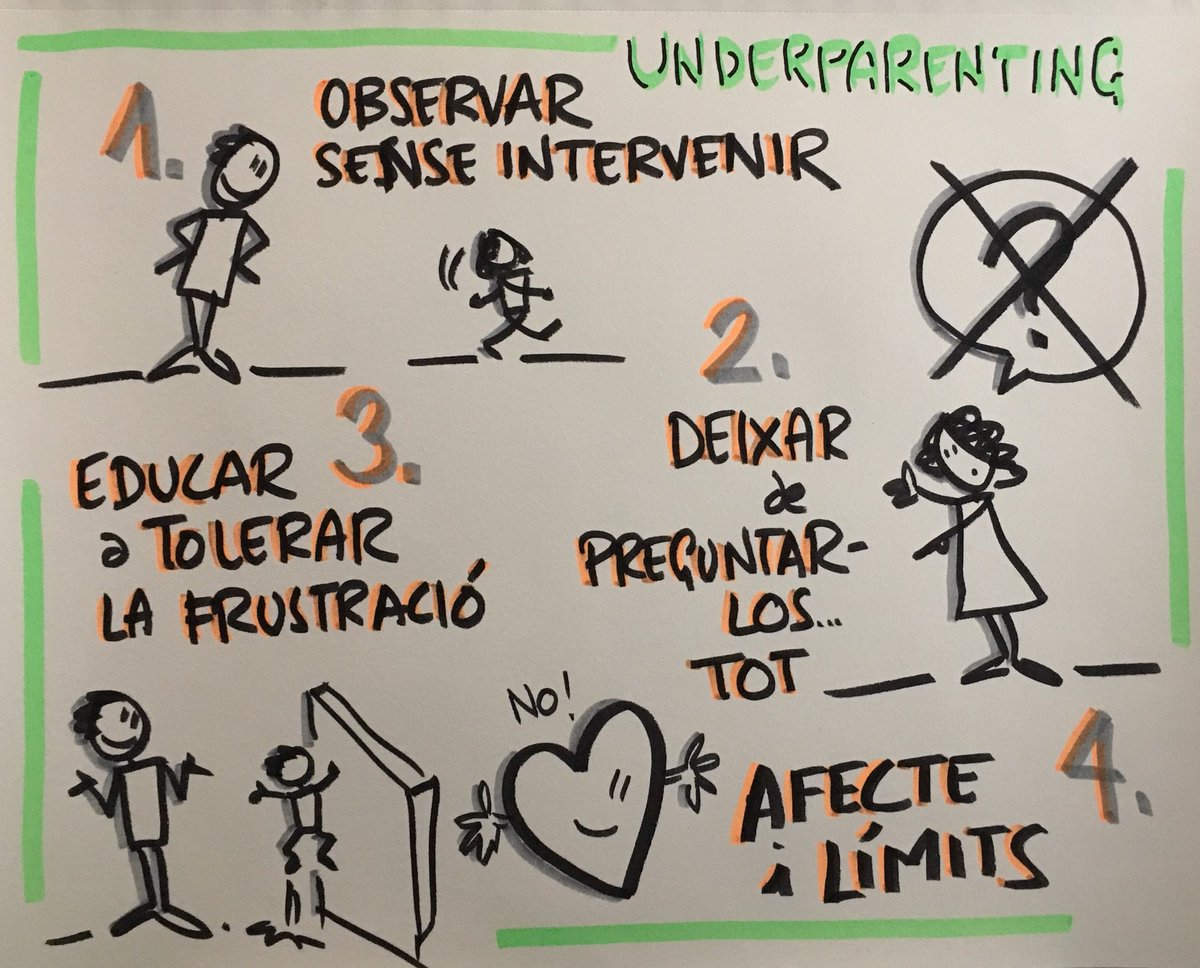 UNDERPARENTING
1.
OBSERVAR
SENSE INTERVENIR
2.
DEIXAR
de
PREGUNTAR-
LOS...
TOT
3.
EDUCAR
a TOLERAR
LA FRUSTRACIÓ
4.
AFECTE
i LÍMITS
NO!
?